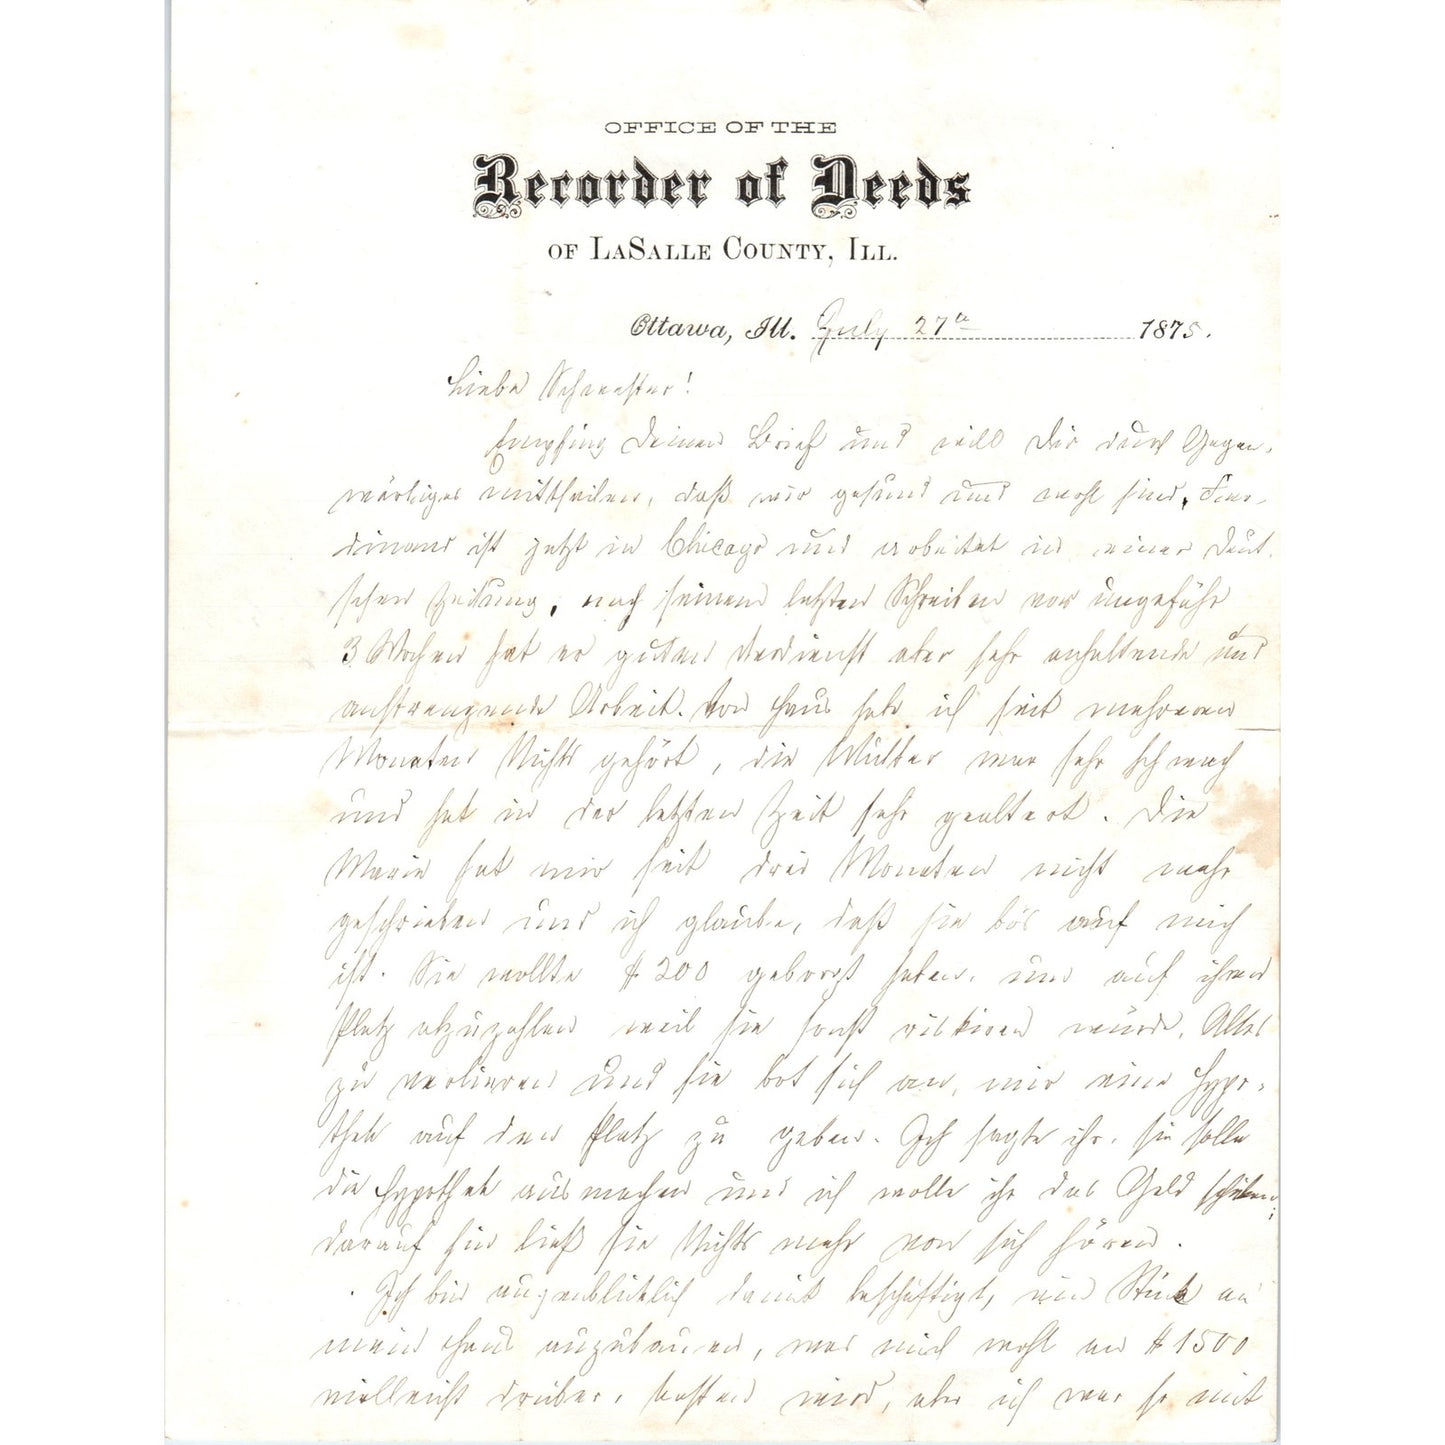 OFFICE OF THE
Recorder of Deeds
OF LASALLE COUNTY, ILL.
Ottawa, Ill. July 27th 1875.
Liebe Schwester!
Empfing Deinen Brief und will Dir durch Gegen-
wärtiges mittheilen, daß wir gesund und wohl sind. Fer-
dinand ist jetzt in Chicago und arbeitet in einer Deut-
schen Zeitung, nach seinem letzten Schreiben vor ungefähr
3 Wochen hat er guten Verdienst aber sehr anhaltende und
anstrengende Arbeit. Von Haus habe ich seit mehreren
Monaten Nichts gehört, die Mutter war sehr schwach
und hat in der letzten Zeit sehr gealtert. Die
Marie hat mir seit drei Monaten nicht mehr
geschrieben und ich glaube, daß sie bös auf mich
ist. Sie wollte $200 geborgt haben, um auf ihren
Platz abzuzahlen weil sie sonst riskiren würde, Alles
zu verlieren und sie bot sich an, mir eine Hypo-
thek auf den Platz zu geben. Ich sagte ihr, sie solle
die Hypothek ausmachen und ich wolle ihr das Geld schicken;
darauf hin ließ sie Nichts mehr von sich hören.
Ich bin augenblicklich damit beschäftigt, ein Stück an
mein Haus anzubauen, was mich wohl an $1500
vielleicht drüber, kosten wird, aber ich war so mit